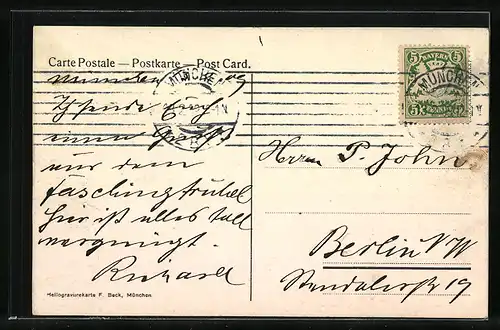 Carte Postale — Postkarte — Post Card.
München 09
Ich sende Euch
einen Gruß
aus dem
Faschingtrubel
hier ist alles toll
vergnügt.
Richard
MÜNCHEN
5 BAYERN 5
MÜNCHEN
Herrn P. John
Berlin NW
Stendalerstr 19
Heliogravurekarte F. Beck, München